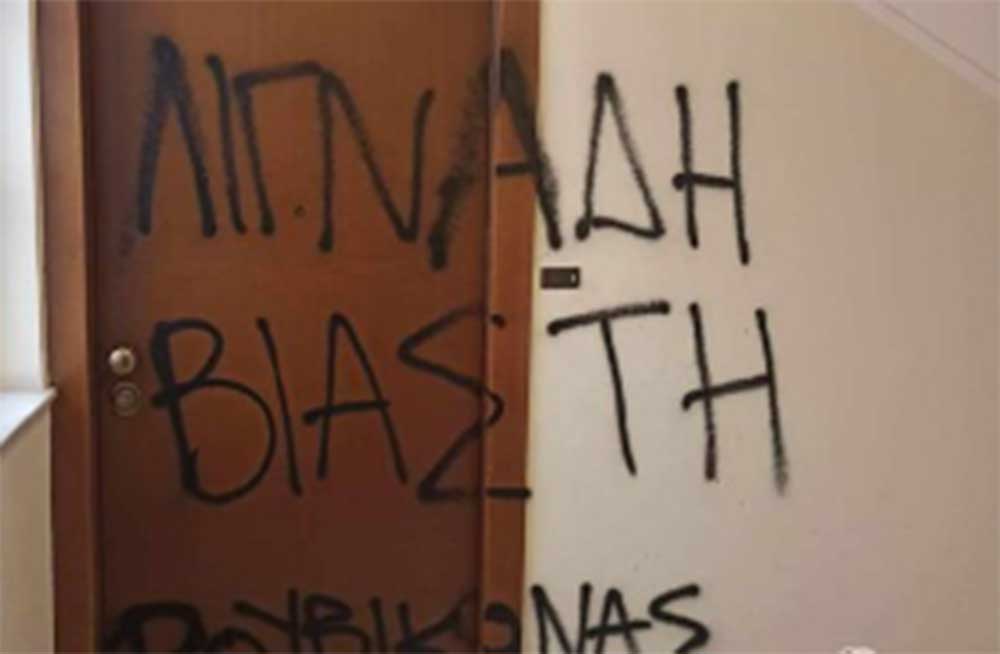 ΛΙΓΝΑΔΗ
ΒΙΑΣΤΗ
ΡΟΥΒΙΚΩΝΑΣ